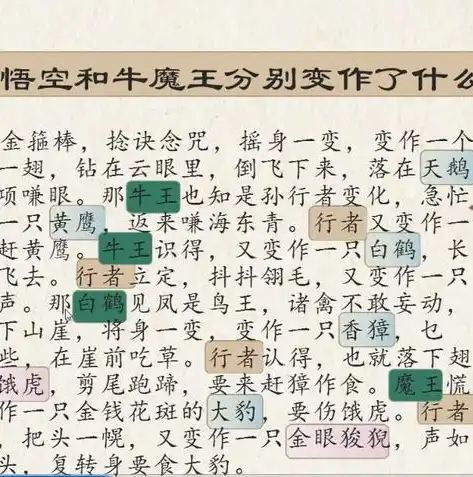 悟空和牛魔王分别变作了什么
金箍棒，捻诀念咒，摇身一变，变作一个
一翅，钻在云眼里，倒飞下来，落在天鹅
项嗛眼。那牛王也知是孙行者变化，急忙
一只黄鹰，返来嗛海东青。行者又变作一
赶黄鹰。牛王识得，又变作一只白鹤，长
飞去。行者立定，抖抖翎毛，又变作一只
声。那白鹤见凤是鸟王，诸禽不敢妄动，
下山崖，将身一变，变作一只香獐，乜
些，在崖前吃草。行者认得，也就落下翅
饿虎，剪尾跑蹄，要来赶獐作食。魔王慌
作一只金钱花斑的大豹，要伤饿虎。行者
，把头一幌，又变作一只金眼狻猊，声如
头，复转身要食大豹。